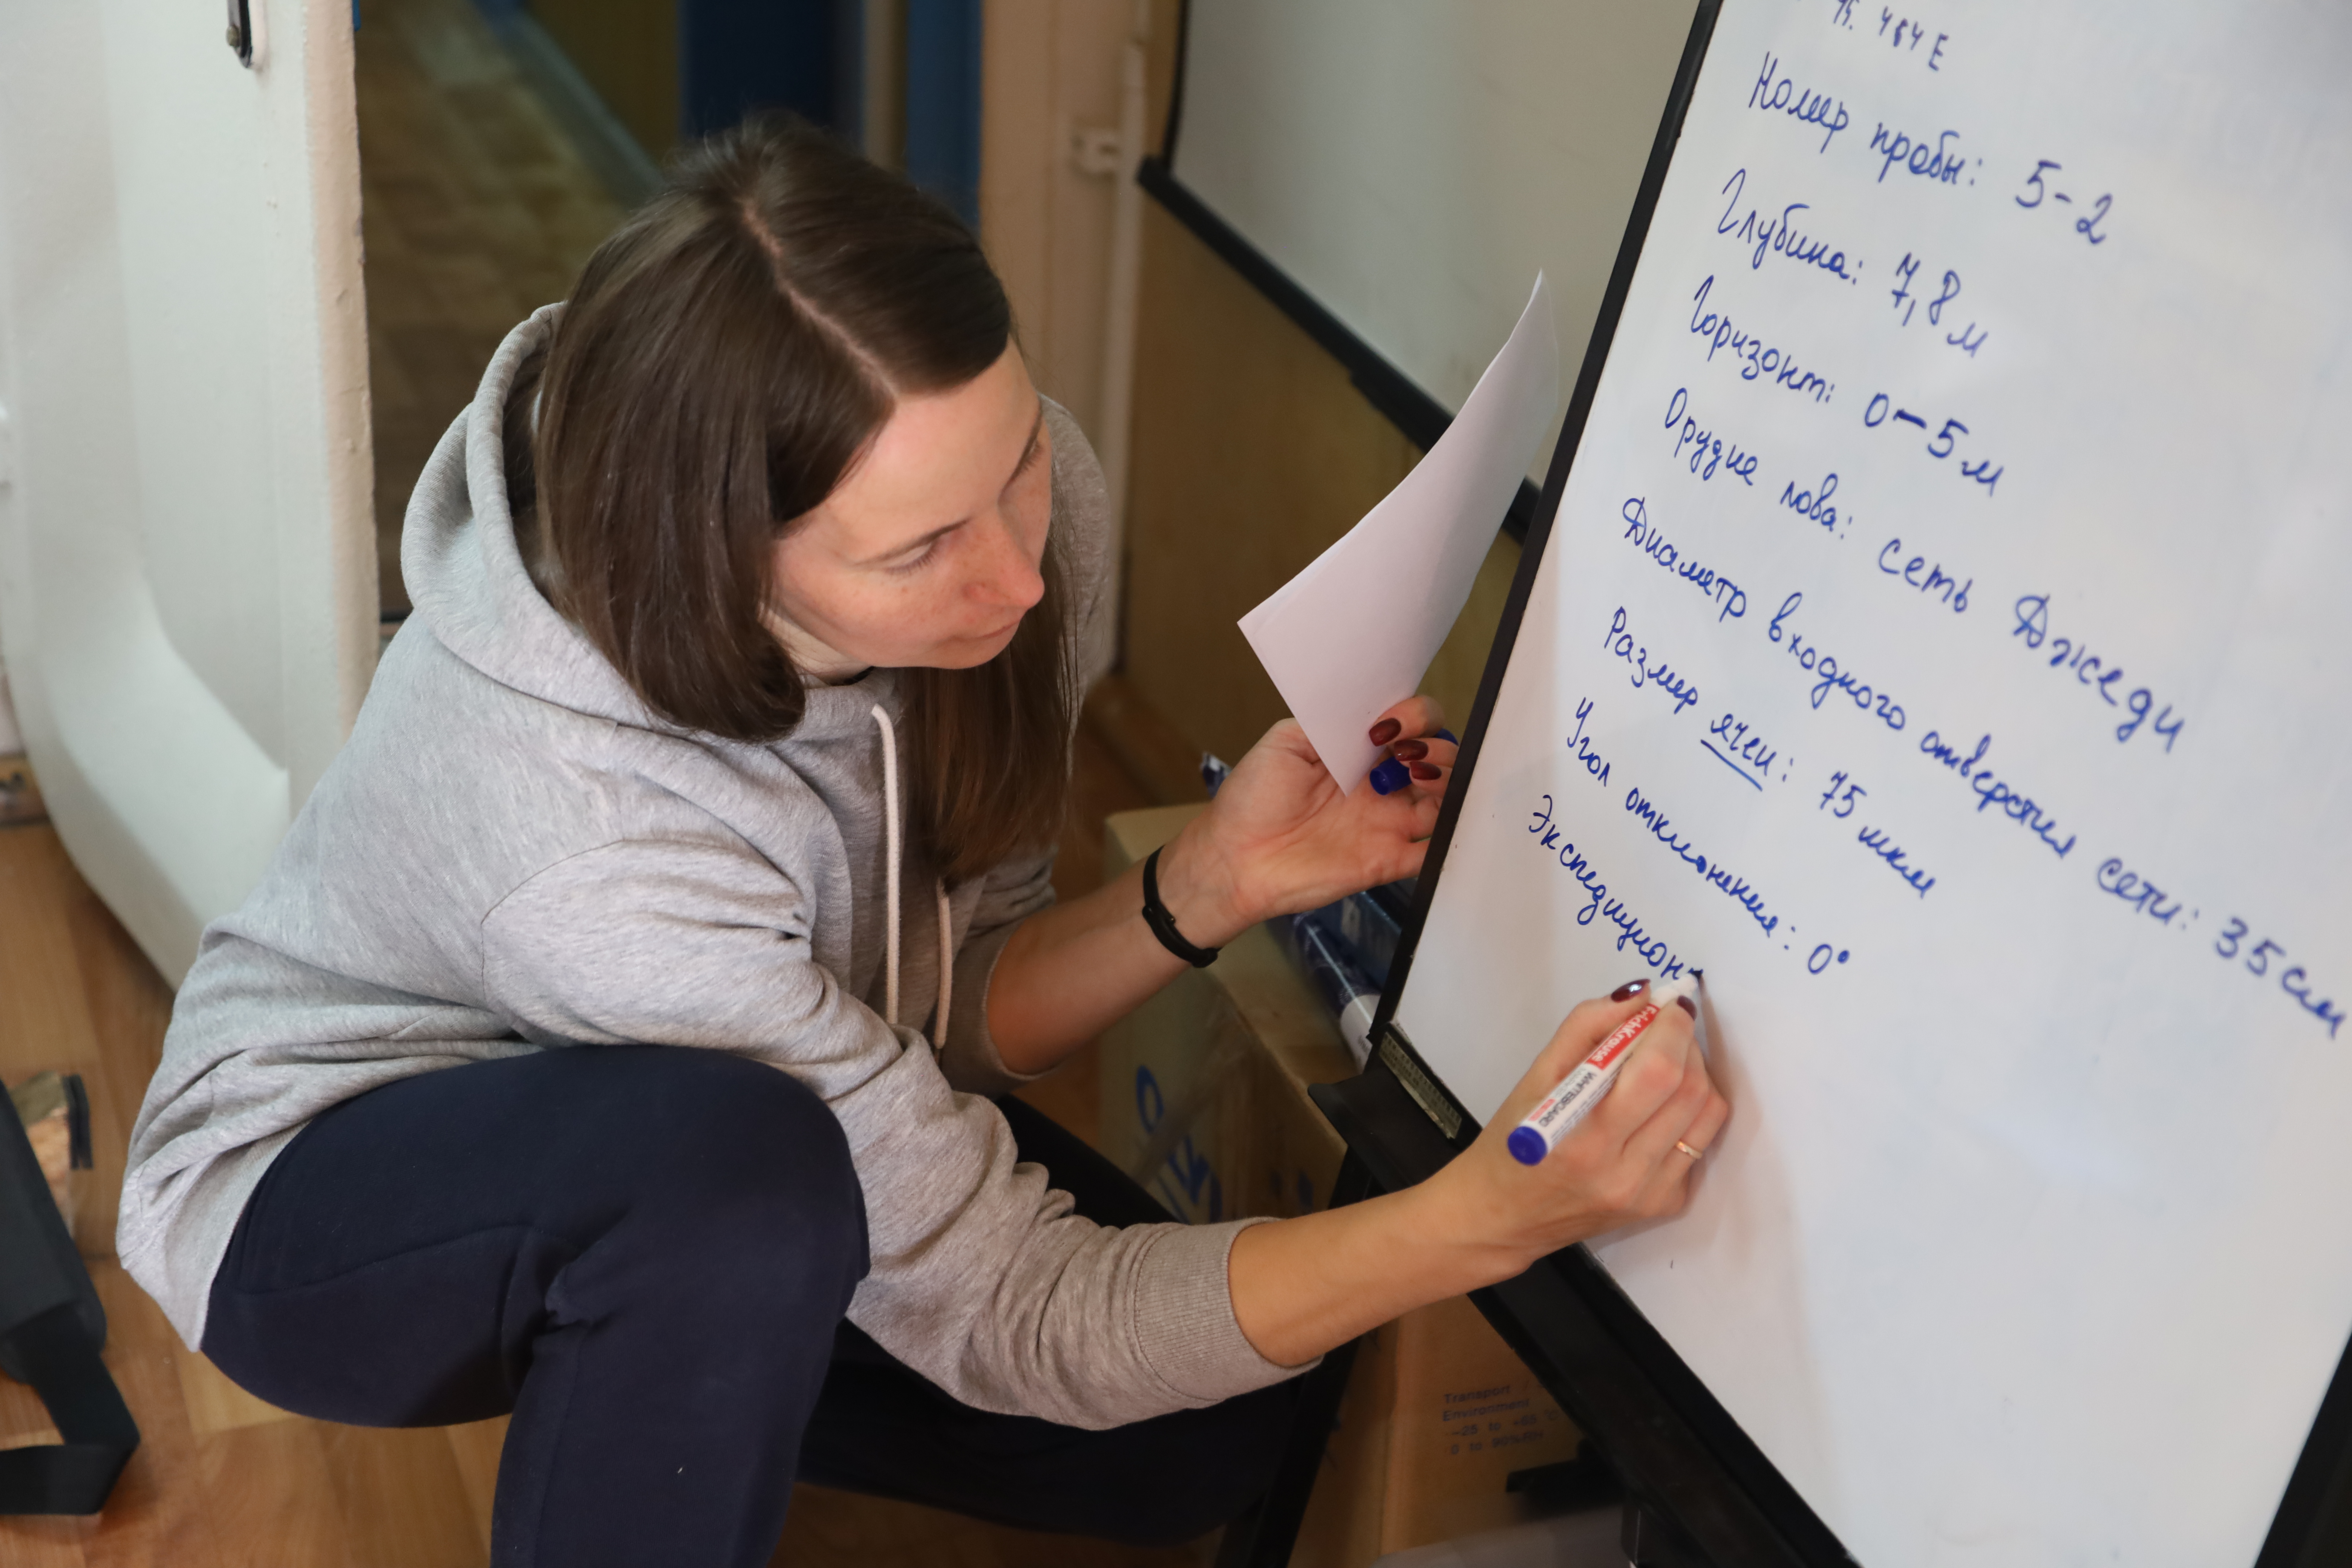 464 E
Номер пробы: 5-2
Глубина: 7,8 м
Горизонт: 0-5 м
Орудие лова: сеть Джеди
Диаметр входного отверстия сети: 35 см
Размер ячеи: 75 мкм
Угол отклонения: 0°
Экспедицион
ErichKrause
WHITEBOARD
Transport
Environment
-25 to +65°C
0 to 90%RH